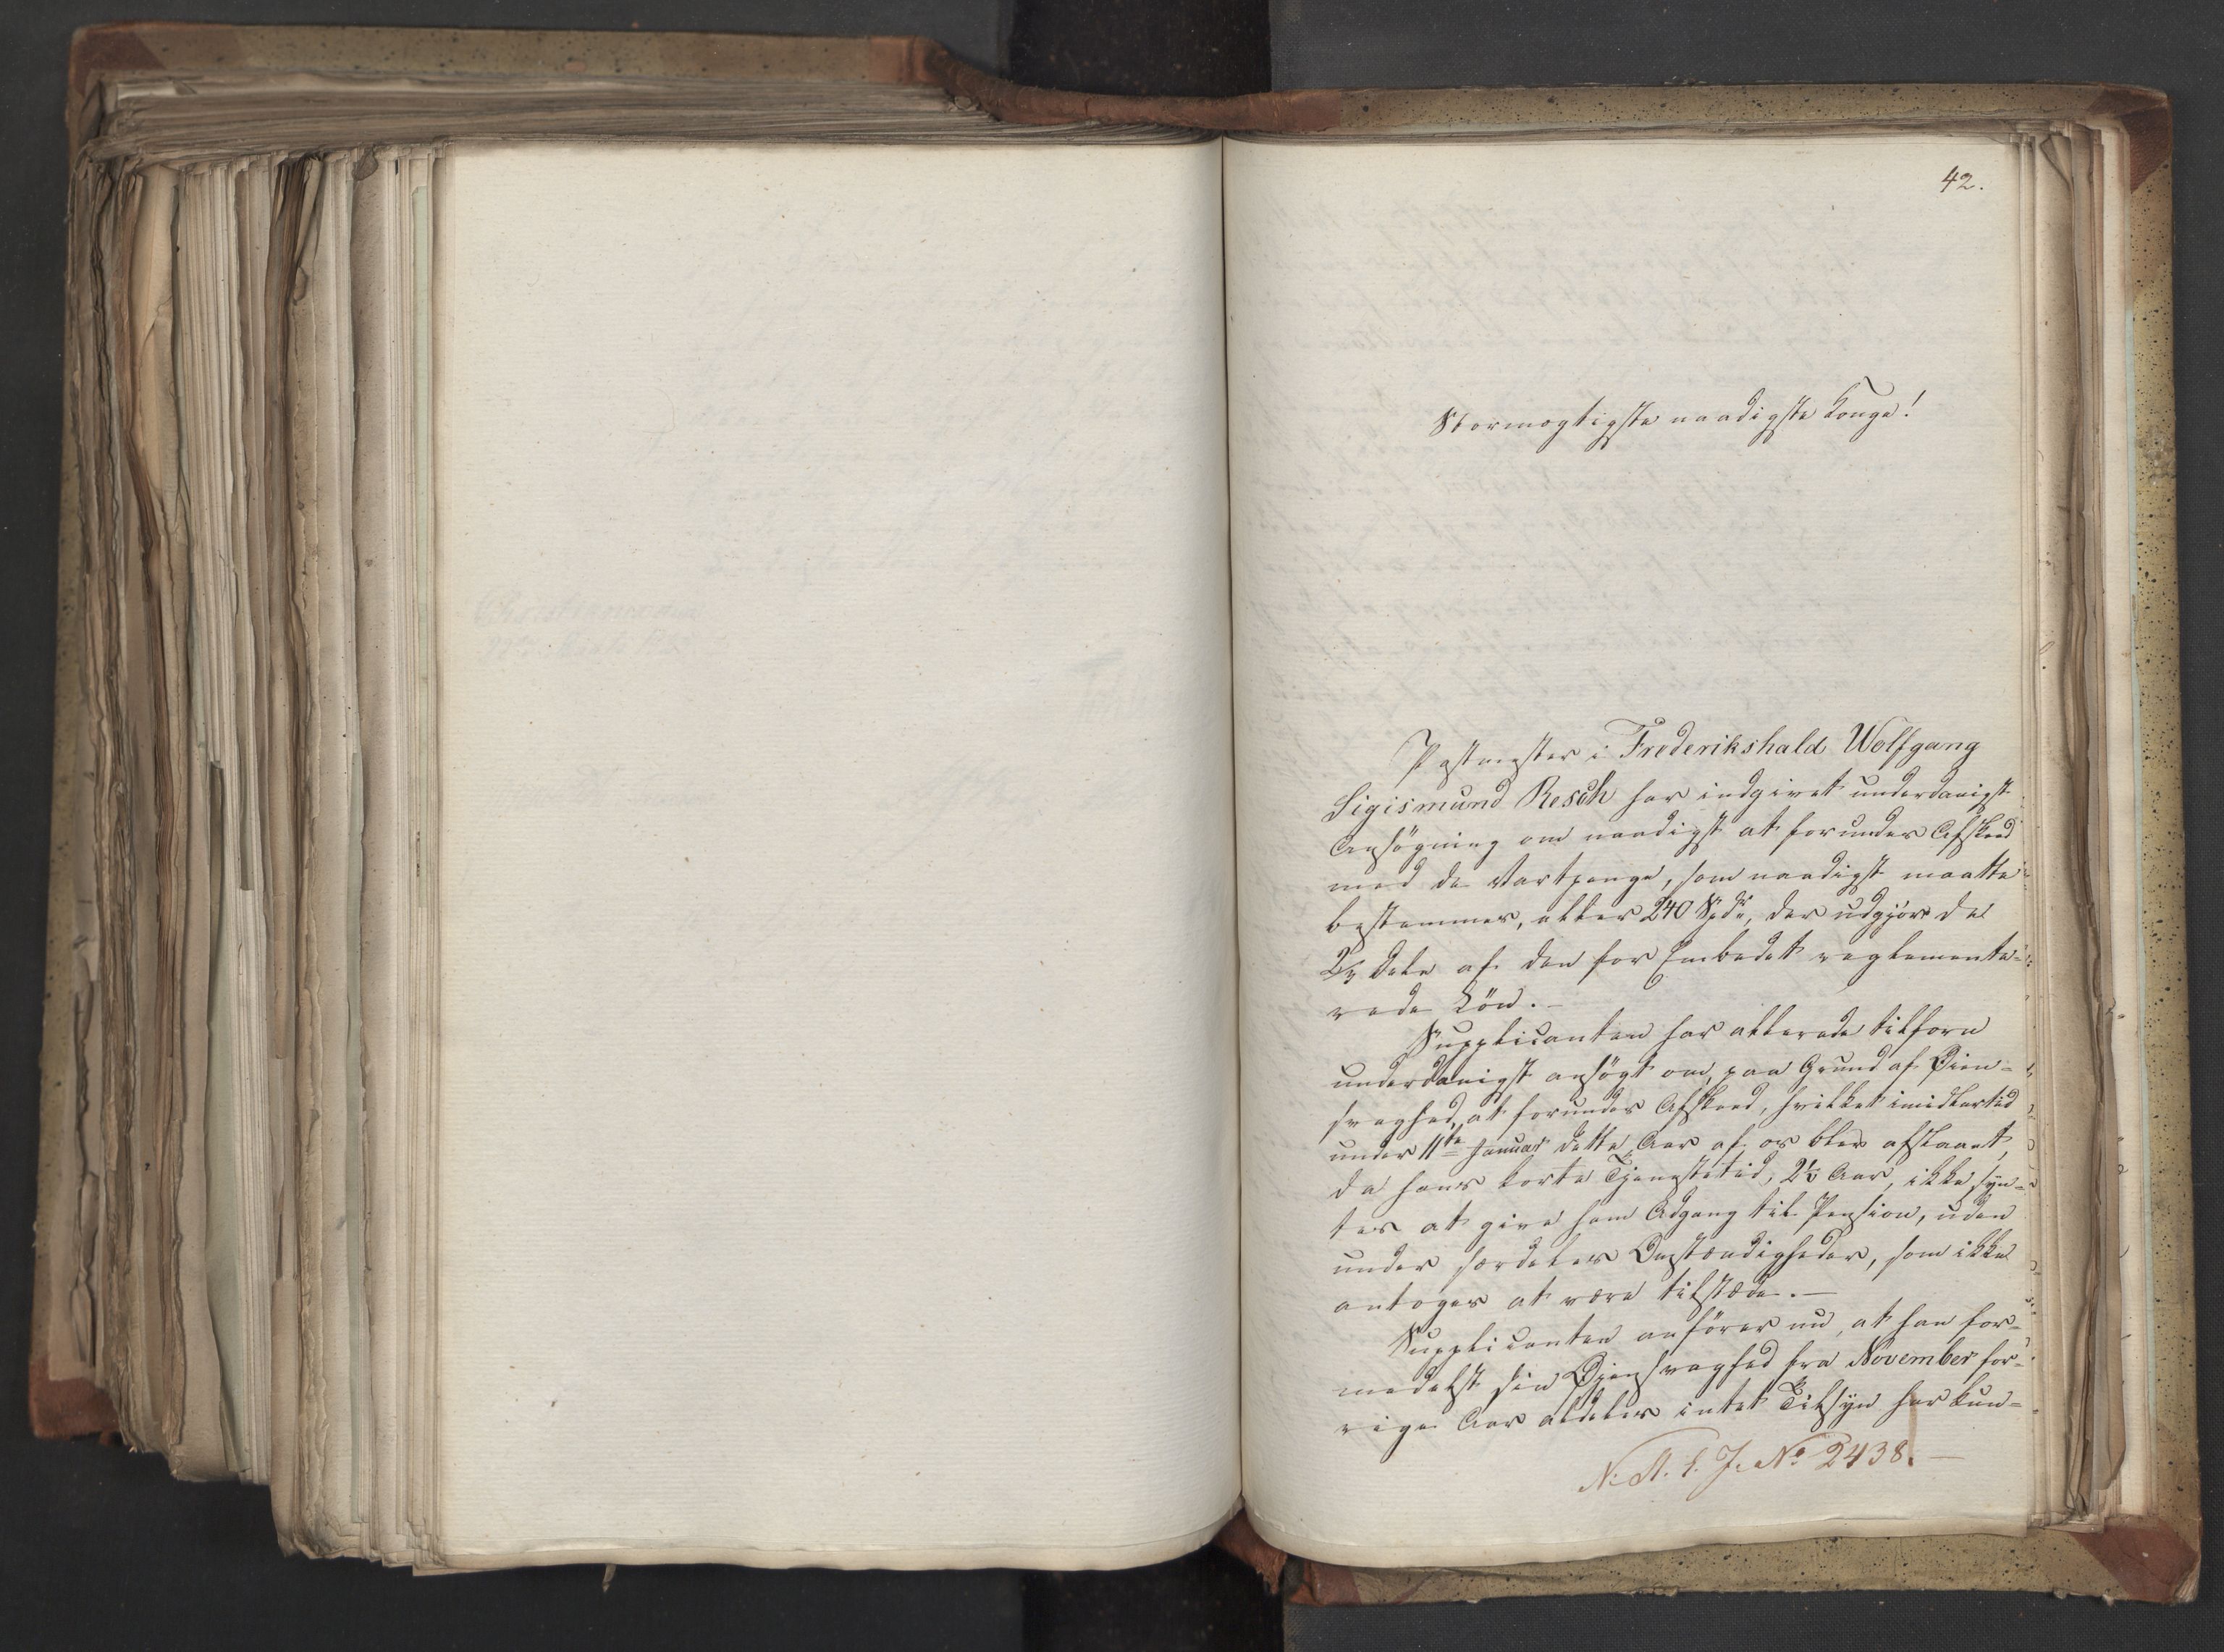 42.
Stormægtigste naadigste Konge!
Postmester i Frederikshald Wolfgang
Sigismund Resch har indgivet underdanigst
Ansögning om naadigst at forundes Afskeed
med de Vartpenge, som naadigst maatte
bestemmes, eller 240 Spdr, der udgjör de
2/3 Dele af den for Embedet reglemente-
rede Lön.-
Supplicanten har allerede tilforn
underdanigst ansögt om, paa Grund af Øien-
svaghed, at forundes Afskeed, hvilket imidlertid
under 11te Januar dette Aar af os blev afslaaet,
da hans korte Tjenestetid, 2½ Aar, ikke syn-
tes at give ham Adgang til Pension, uden
under særdeles Omstændigheder, som ikke
antoges at være tilstæde.-
Supplicanten anförer nu, at han for-
medelst sin Øiensvaghed fra November for-
rige Aar aldeles intet Tilsyn har kun-
N. A. J. No 2438.-